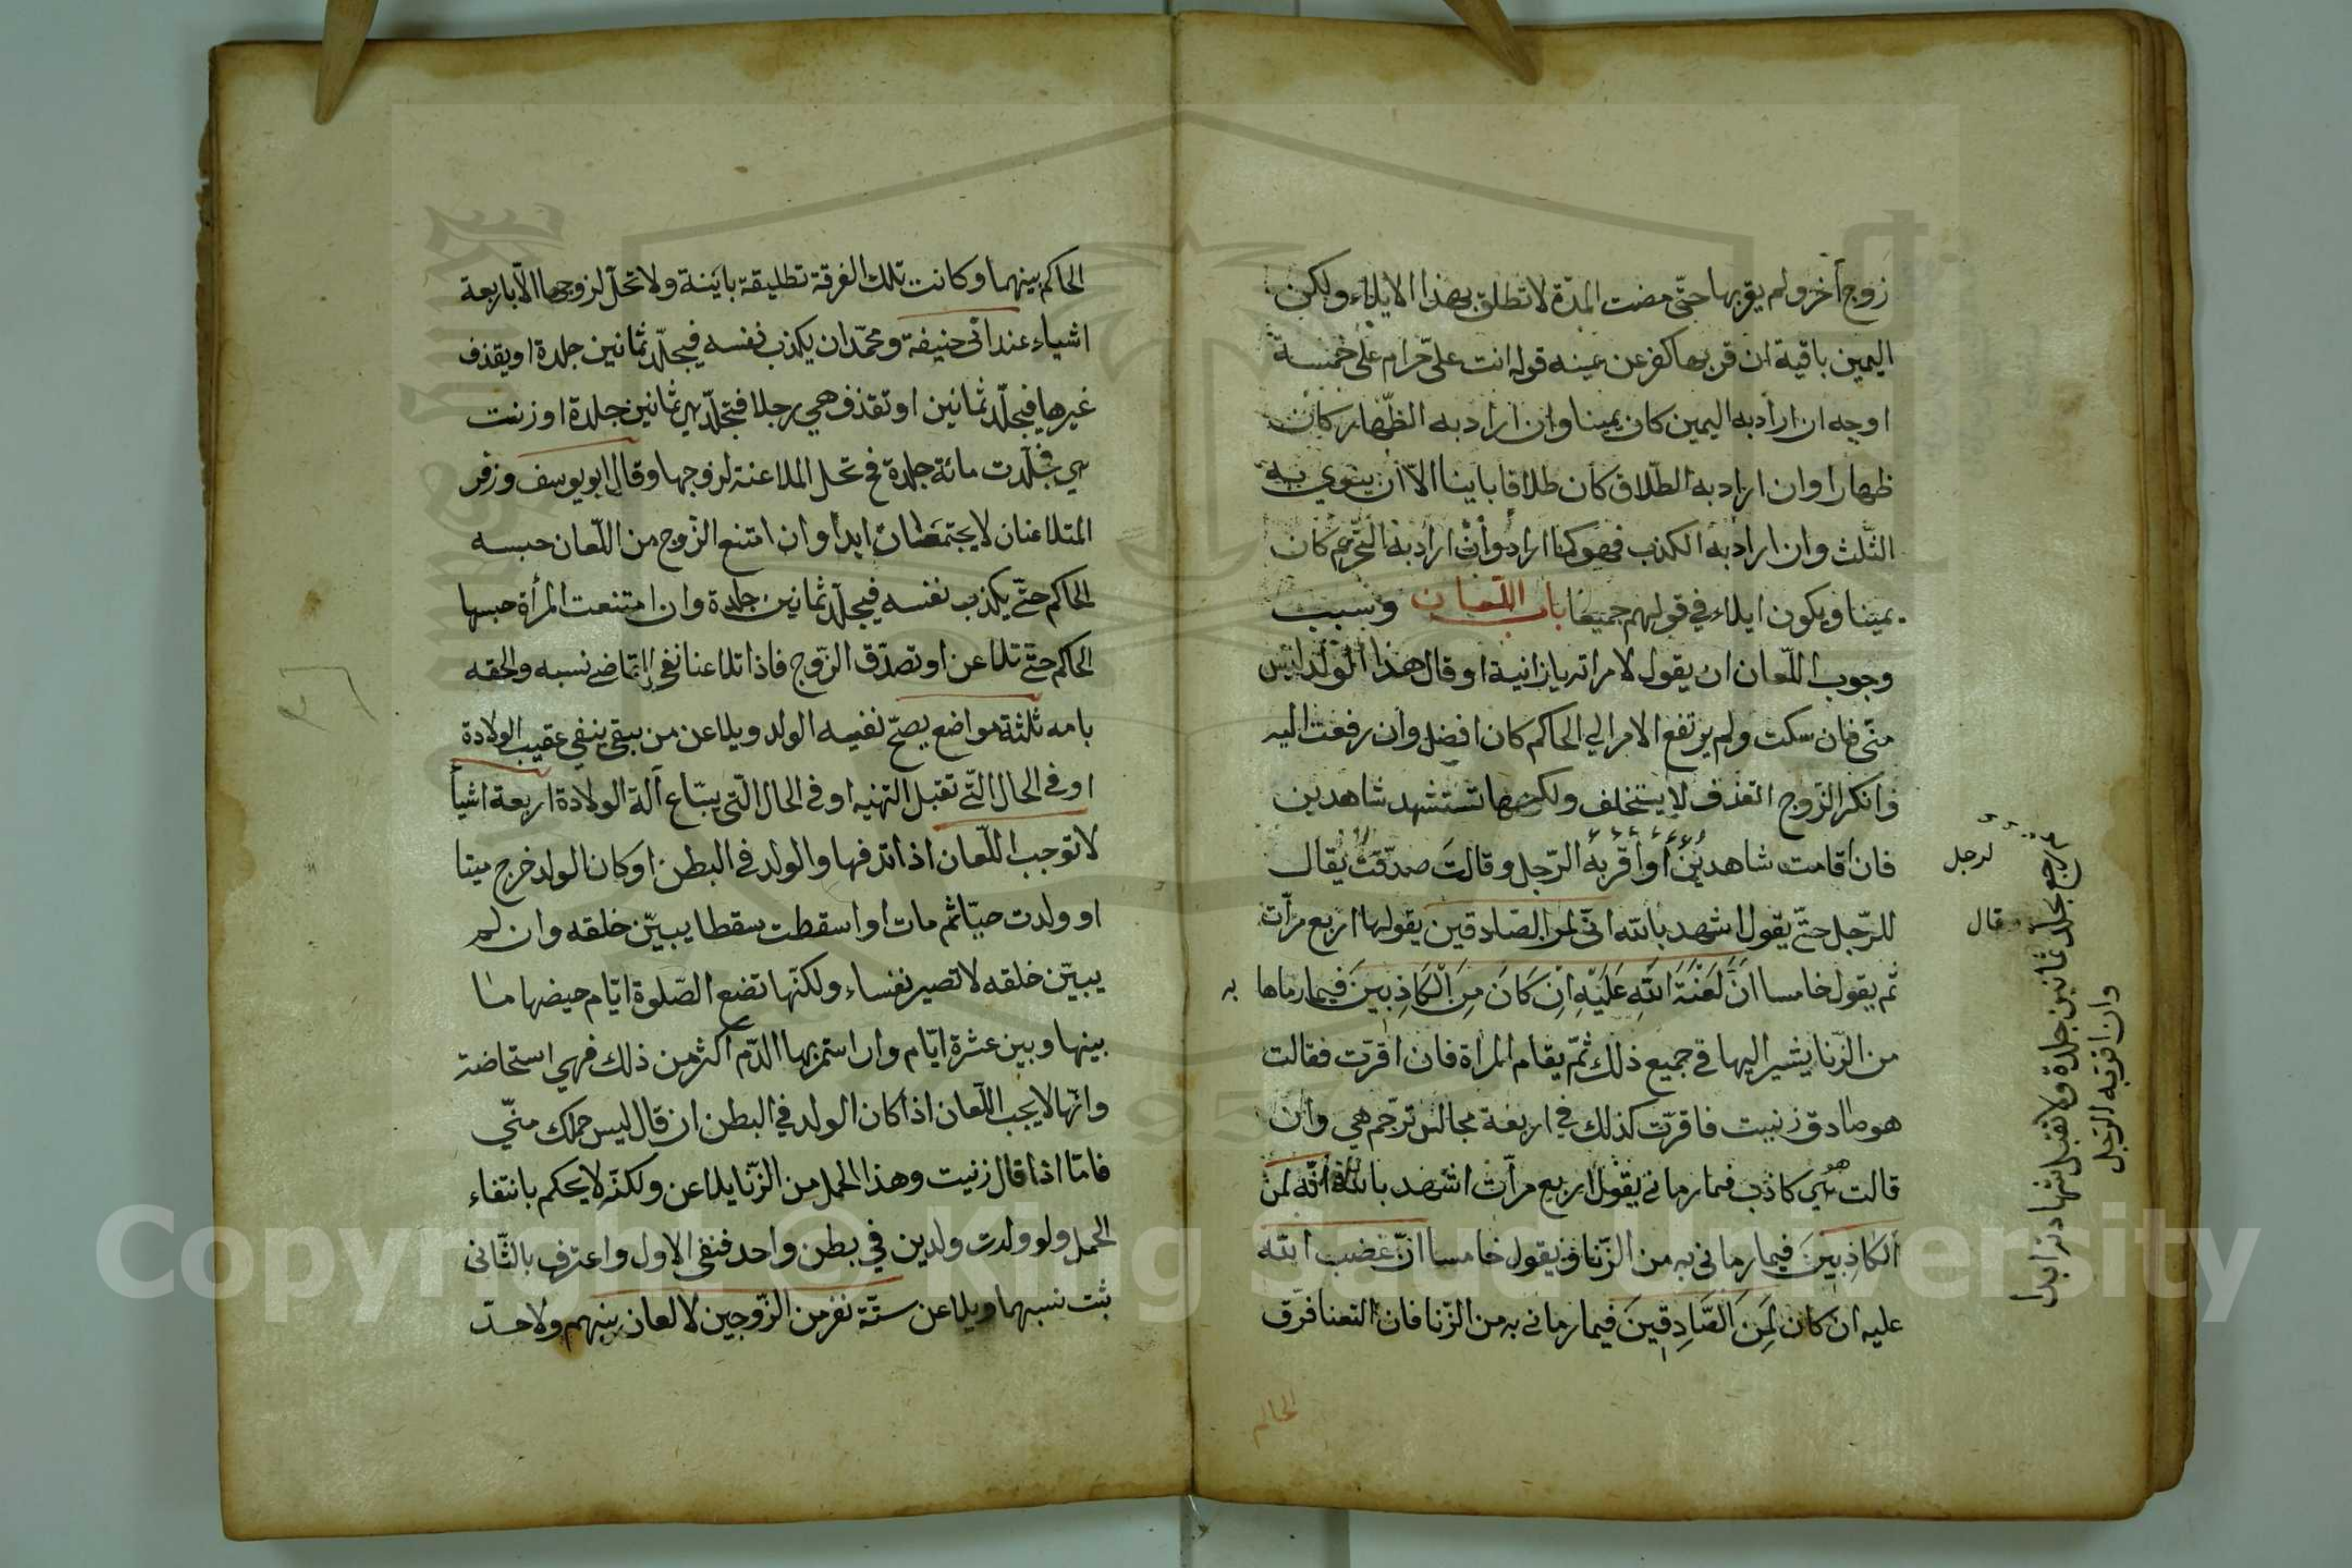 زوج أخر ولم يقربها حتّى مضت المدّة لا تطلق بهذا الايلاء ولكن
اليمين باقية ان قربها كفر عن يمينه قوله انت علىّ حرام على خمسة
اوجه ان اراد به اليمين كان يمينا وان اراد به الظّهار كان
ظهارا وان اراد به الطّلاق كان طلاقا باينا الاّ ان ينوي به
الثّلث وان اراد به الكذب فهو كما اراد وان اراد به التّحريم كان
يمينا ويكون ايلاء في قولهم جميعا باب اللّعان وسبب
وجوب اللّعان ان يقول لامراته يا زانية او قال هذا الولد ليس
منّى فان سكت ولم يرتفع الامر الي الحاكم كان افضل وان رفعت اليه
وانكر الزّوج القذف لا يستحلف ولكنها تستشهد شاهدين
فان اقامت شاهدين او أقر به الرّجل وقالت صدقت يقال
للرّجل حتّى يقول اشهد بالله انّى لمن الصّادقين يقولها اربع مرّات
ثم يقول خامسا انَّ لَعْنَةَ اللهِ عَلَيْهِ اِنْ كَانَ مِنَ الْكَاذِبِينَ فيما رماها به
من الزّنا يشير اليها في جميع ذلك ثمّ يقام المراة فان اقرّت فقالت
هو صادق زنيت فاقرّت كذلك في اربعة مجالس ترجم هي وان
قالت هو كاذب فيما رمانى يقول اربع مرّات اشهد بالله انّه لمن
الكَاذِبِينَ فيما رمانى به من الزّنا ويقول خامسا انّ غضب الله
عليه ان كان لَمِنَ الصَّادِقِينَ فيما رمانى به من الزّنا فان التعنا فرّق
الحاكم
لرجل
وقال
رجع يجلد ثمانين جلدة ولا تقبل شهادته ابدا
وان اقر به الرّجل
الحاكم بينهما وكانت تلك الفرقة تطليقة باينة ولا تحلّ لزوجها الاّ باربعة
اشياء عند ابى حنيفة ومحمّد ان يكذب نفسه فيجلّد ثمانين جلدة او يقذف
غيرها فيجلّد ثمانين او تقذف هي رجلا فتجلّد هي ثمانين جلدة او زنت
هي فجلّدت مائة جلدة فح تحل الملاعنة لزوجها وقال ابو يوسف وزفر
المتلاعنان لا يجتمعان ابدا وان امتنع الزّوج من اللّعان حبسه
الحاكم حتّى يكذب نفسه فيجلّد ثمانين جلدة وان امتنعت المرأة حبسها
الحاكم حتّى تلاعن او تصدّق الزّوج فاذا تلاعنا نفى القاضى نسبه والحقه
بامه ثلثة مواضع يصحّ نفيه الولد ويلاعن من بينفي عقيب الولادة
او في الحال التّى تقبل التهنيه او في الحال التّى يبتاع ألة الولادة اربعة اشياأ
لا توجب اللّعان اذا قذفها والولد في البطن او كان الولد خرج ميتا
او ولدت حيّا ثم مات او اسقطت سقطا يبيّن خلقه وان لم
يبيّن خلقه لا تصير نفساء ولكنّها تضع الصّلوة ايّام حيضها ما
بينها وبين عشرة ايّام وان استمر بها الدّم اكثر من ذلك فهي استحاضة
وانّها لا يجب اللّعان اذا كان الولد في البطن ان قال ليس حملك منّي
فامّا اذا قال زنيت وهذا الحمل من الزّنا يلاعن ولكنّه لا يحكم بانتفاء
الحمل ولو ولدت ولدين في بطن واحد فنفى الاول واعترف بالثّانى
ثبت نسبهما ويلاعن ستّة نفر من الزّوجين لا لعان بينهم ولا حدّ
Copyright © King Saud University